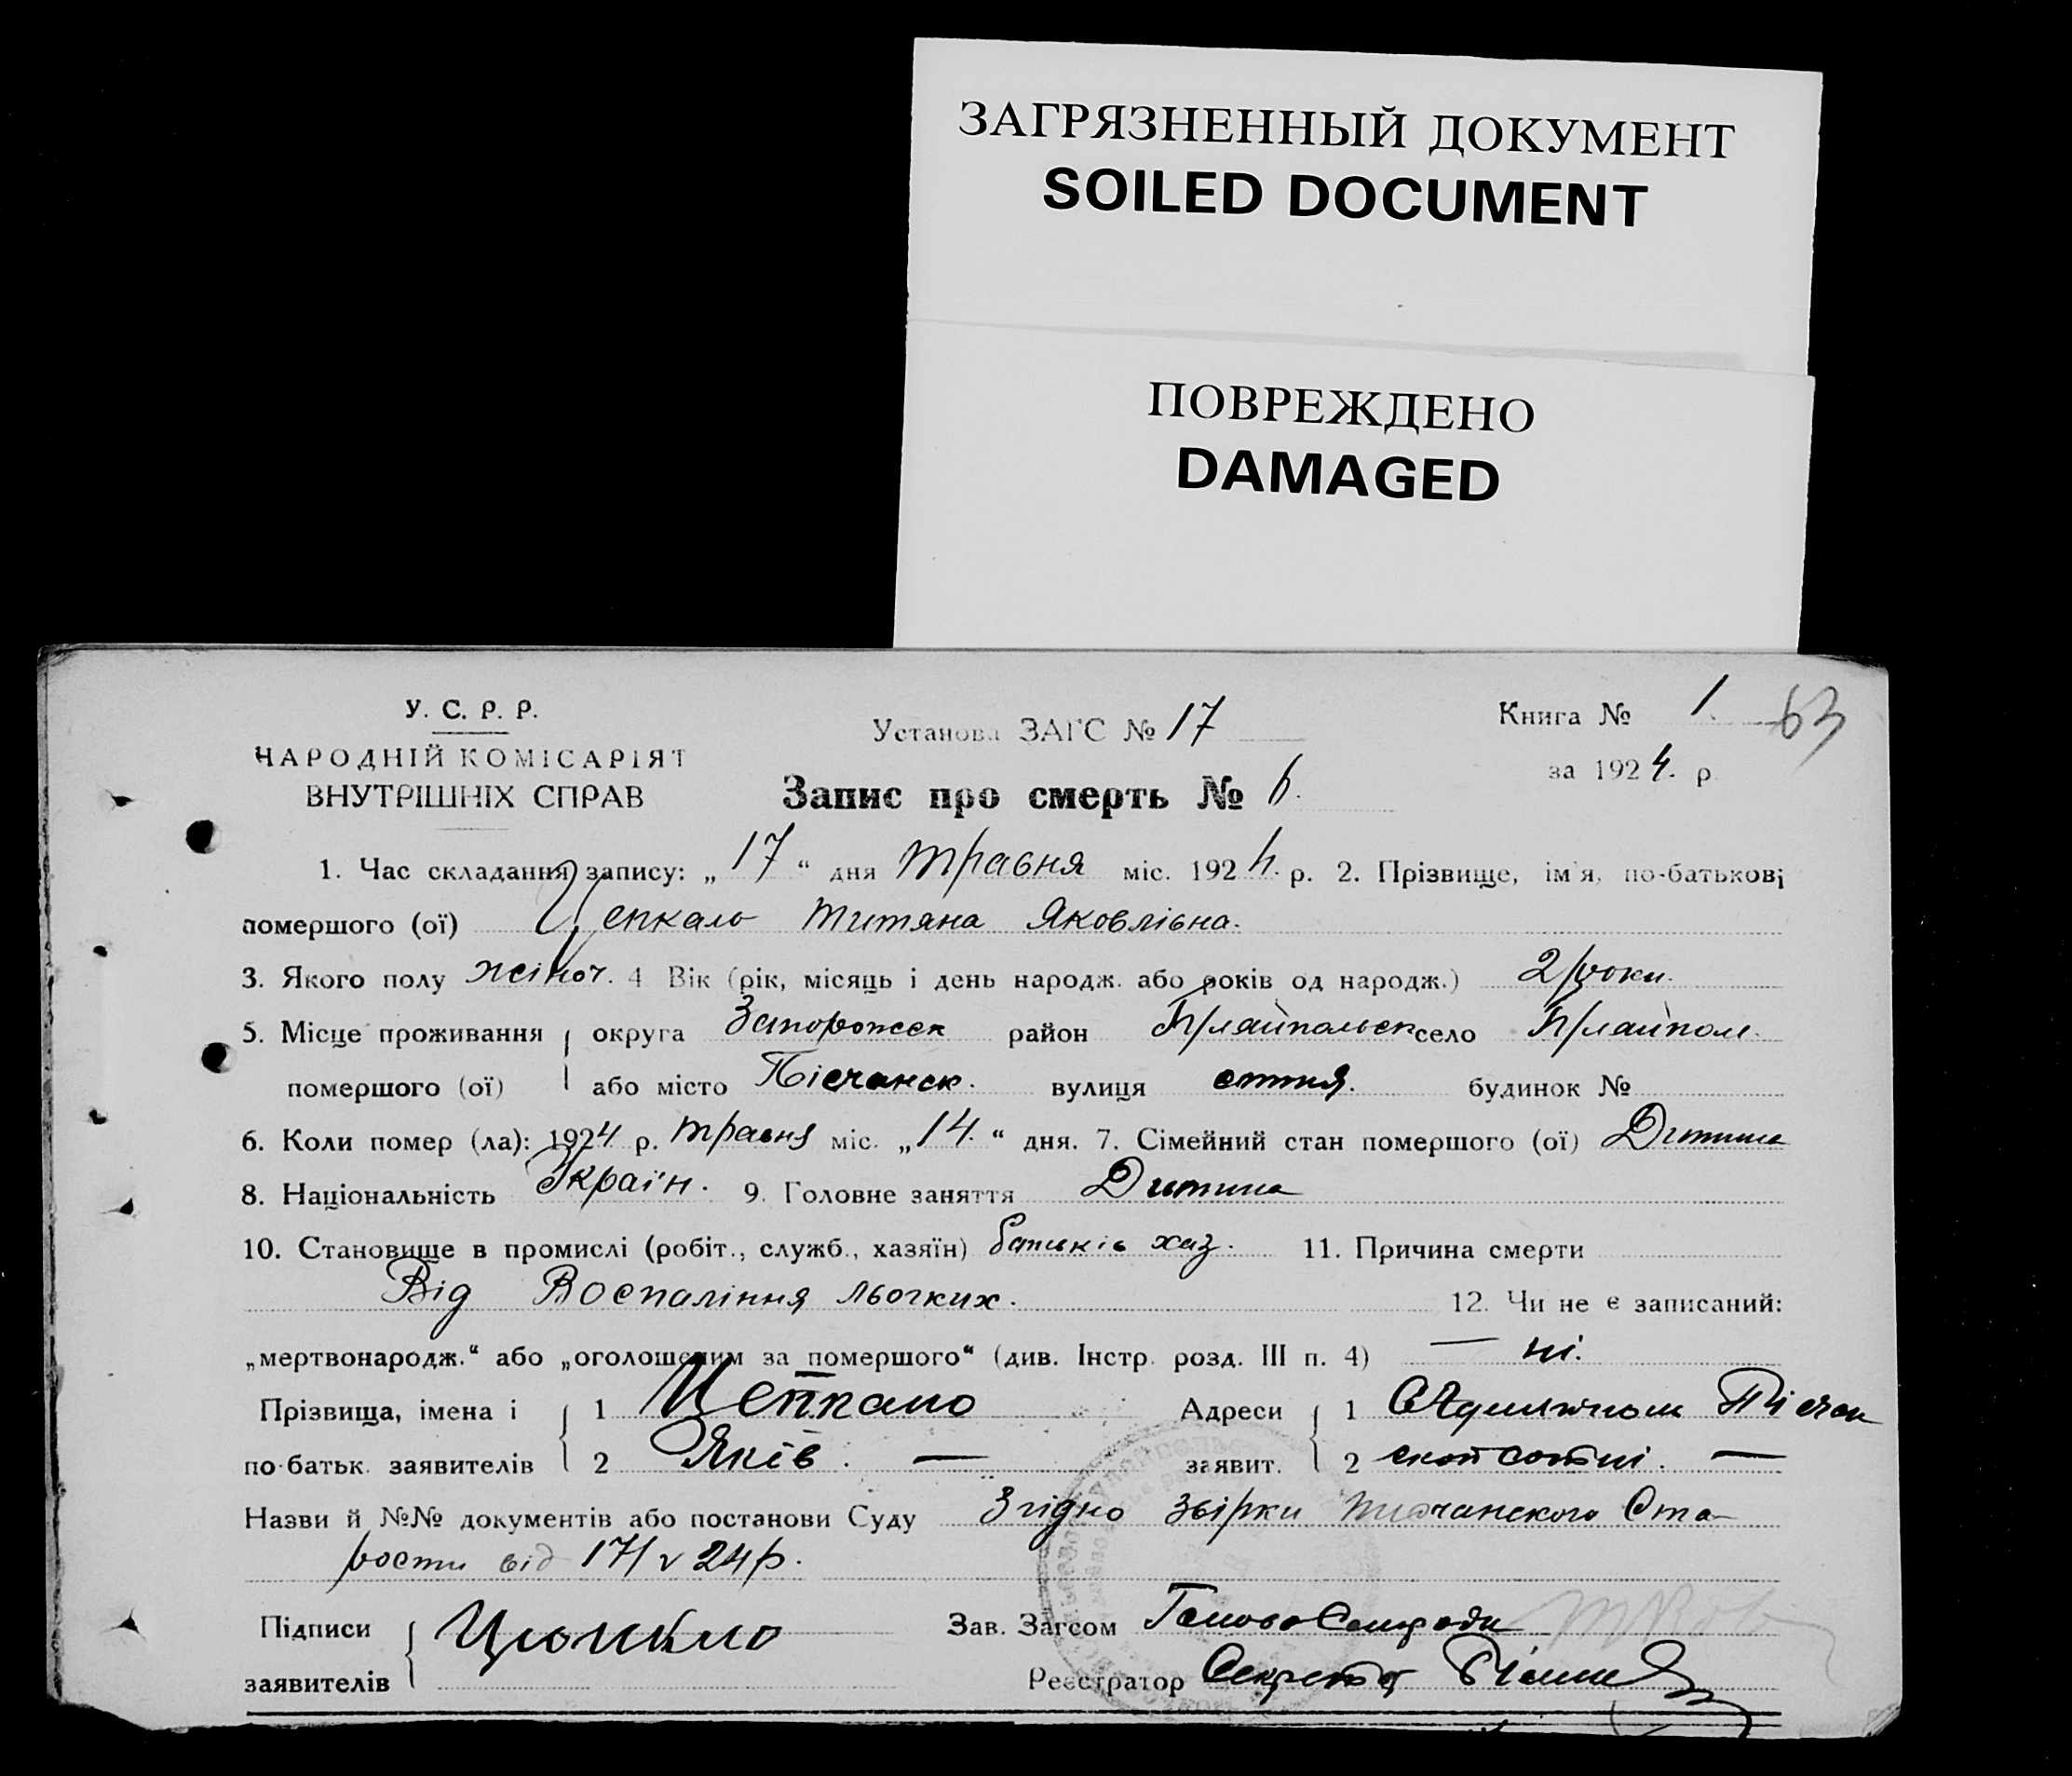 ЗАГРЯЗНЕННЫЙ ДОКУМЕНТ
SOILED DOCUMENT
ПОВРЕЖДЕНО
DAMAGED
У. С. Р. Р.
НАРОДНІЙ КОМІСАРІЯТ
ВНУТРІШНІХ СПРАВ
Установа ЗАГС № 17
Книга № 1. 63
за 1924. р
Запис про смерть № 6.
1. Час складання запису: „17“ дня травня міс. 1924. р. 2. Прізвище, ім'я, по-батькові
помершого (ої) Цепкало Титяна Яковлівна.
3. Якого полу жіноч. 4 Вік (рік, місяць і день народж. або років од народж.) 2 роки.
5. Місце проживання округа Запорожск район Гуляйпольск село Гуляйполе.
помершого (ої) або місто Пісчанск. вулиця сотня. будинок №
6. Коли помер (ла): 1924 р. травня міс. „14.“ дня. 7. Сімейний стан помершого (ої) Дитина
8. Національність Україн. 9. Головне заняття Дитина
10. Становище в промислі (робіт., служб., хазяїн) батьків хаз. 11. Причина смерти
Від Воспаління льогких. 12. Чи не є записаний:
„мертвонародж.“ або „оголошеним за помершого“ (див. Інстр. розд. III п. 4) — ні.
Прізвища, імена і 1 Цепкало Адреси 1 Пісчан
по-батьк. заявителів 2 Яків. — заявит. 2 ской сотні. —
Назви й №№ документів або постанови Суду Згідно звірки Писчанского Ста-
рости від 17/V 24 р.
Підписи Зав. Загсом Голова Сельради
заявителів Реєстратор Секретар